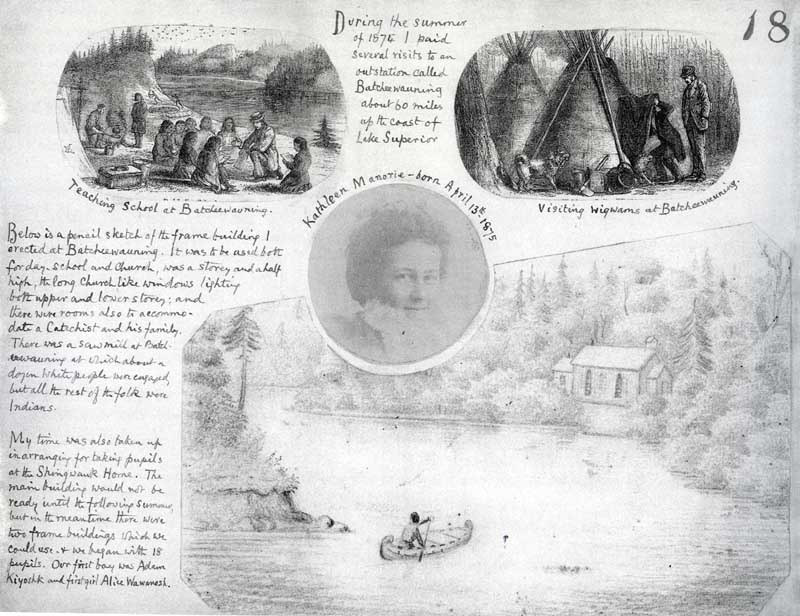 18
During the summer
of 1875 I paid
several visits to an
outstation called
Batcheewauning
about 60 miles
up the coast of
Lake Superior
Teaching School at Batcheewauning.
Visiting Wigwams at Batcheewauning.
Kathleen Manorie - born April 13th 1875
Below is a pencil sketch of the frame building I
erected at Batcheewauning. It was to be used both
for day-school and Church, was a storey and a half
high, the long church like windows lighting
both upper and lower storey; and
there were rooms also to accommo-
date a Catechist and his family.
There was a saw mill at Batch-
eewauning at which about a
dozen white people were engaged,
but all the rest of the folk were
Indians.
My time was also taken up
in arranging for taking pupils
at the Shingwauk Home. The
main building would not be
ready until the following summer,
but in the meantime there were
two frame buildings which we
could use. & we began with 18
pupils. Our first boy was Adam
Kiyoshk and first girl Alice Wawanosh.